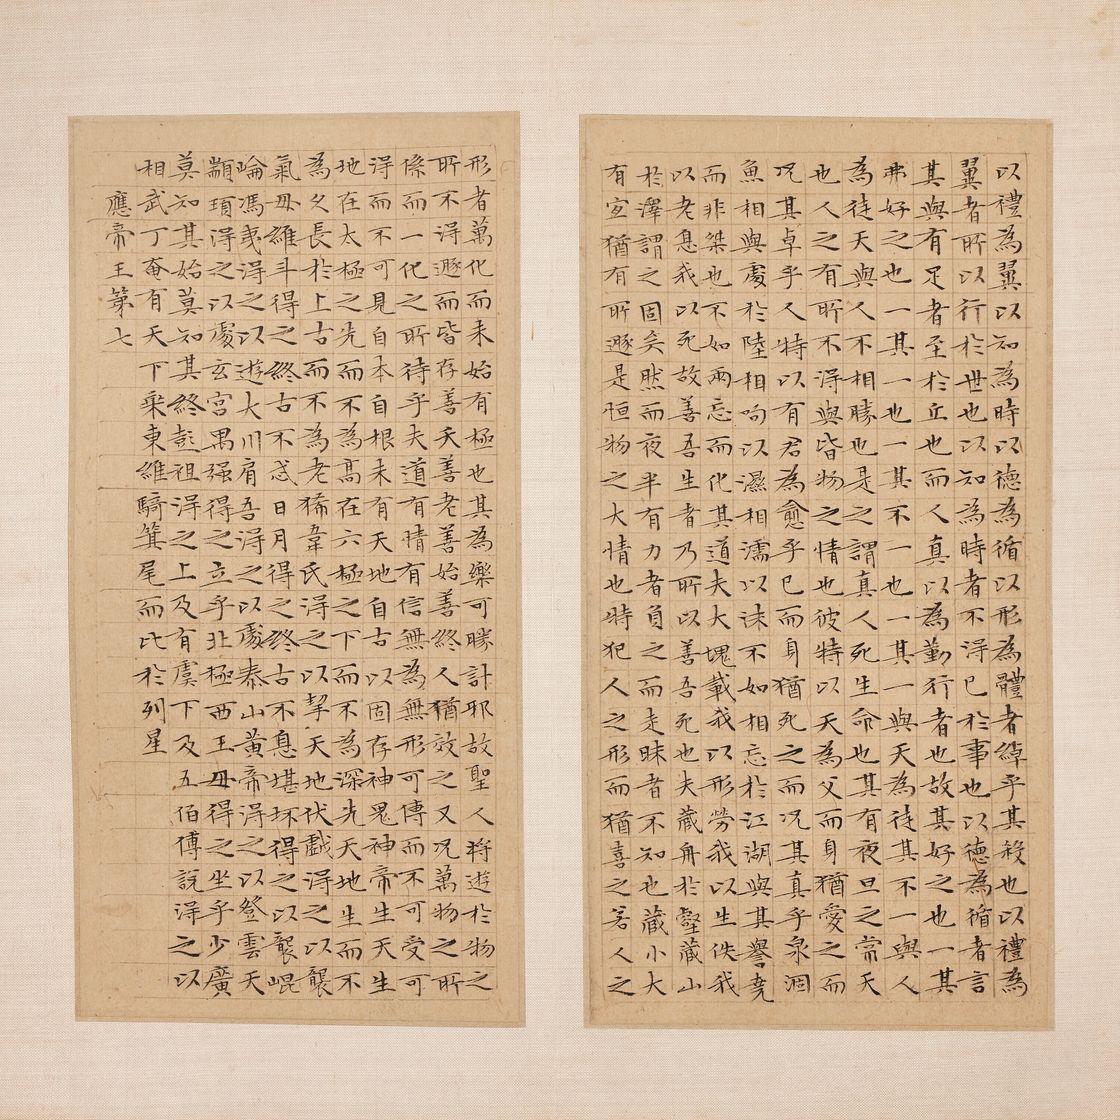 以禮為翼以知為時以德為循以形為體者綽乎其殺也以禮為
翼者所以行於世也以知為時者不得已於事也以德為循者言
其與有足者至於丘也而人真以為勤行者也故其好之也一其
弗好之也一其一也一其不一也一其一與天為徒其不一與人
為徒天與人不相勝也是之謂真人死生命也其有夜旦之常天
也人之有所不得與皆物之情也彼特以天為父而身猶愛之而
况其卓乎人特以有君為愈乎已而身猶死之而况其真乎泉涸
魚相與處於陸相呴以濕相濡以沫不如相忘於江湖與其譽堯
而非桀也不如兩忘而化其道夫大塊載我以形勞我以生佚我
以老息我以死故善吾生者乃所以善吾死也夫藏舟於壑藏山
於澤謂之固矣然而夜半有力者負之而走昧者不知也藏小大
有宜猶有所遯是恒物之大情也特犯人之形而猶喜之若人之
形者萬化而未始有極也其為樂可勝計邪故聖人将遊於物之
所不得遯而皆存善夭善老善始善終人猶效之又况萬物之所
係而一化之所待乎夫道有情有信無為無形可傳而不可受可
得而不可見自本自根未有天地自古以固存神鬼神帝生天生
地在太極之先而不為高在六極之下而不為深先天地生而不
為久長於上古而不為老狶韋氏得之以挈天地伏戲得之以襲
氣母維斗得之終古不忒日月得之終古不息堪坏得之以襲崐
崘馮夷得之以遊大川肩吾得之以處泰山黃帝得之以登雲天
顓頊得之以處玄宮禺强得之立乎北極西王母得之坐乎少廣
莫知其始莫知其終彭祖得之上及有虞下及五伯傅說得之以
相武丁奄有天下乘東維騎箕尾而比於列星
應帝王第七